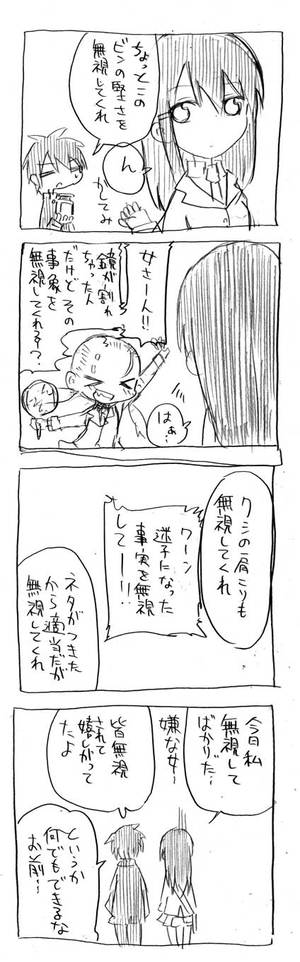 ちょっとこの
ビンの堅さを
無視してくれ
ん
かしてみ
女さーん!!
鏡が割れ
ちゃったん
だけどその
事象を
無視してくれるー!?
はぁ?
ワシの肩こりも
無視してくれ
ワーン
迷子になった
事実を無視
してーー!!
ネタがつきた
から適当だが
無視してくれ
今日私
無視して
ばかりだ…
嫌な女…
皆無視
されて
嬉しがって
たよ
というか
何でもできるな
お前…